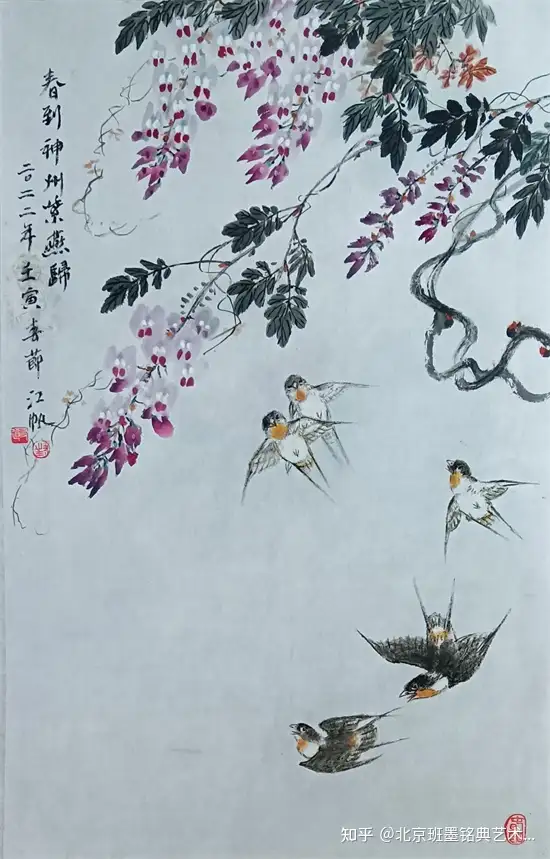 春到神州紫燕歸
二〇二二年壬寅春節江帆
知乎 @北京班墨铭典艺术...